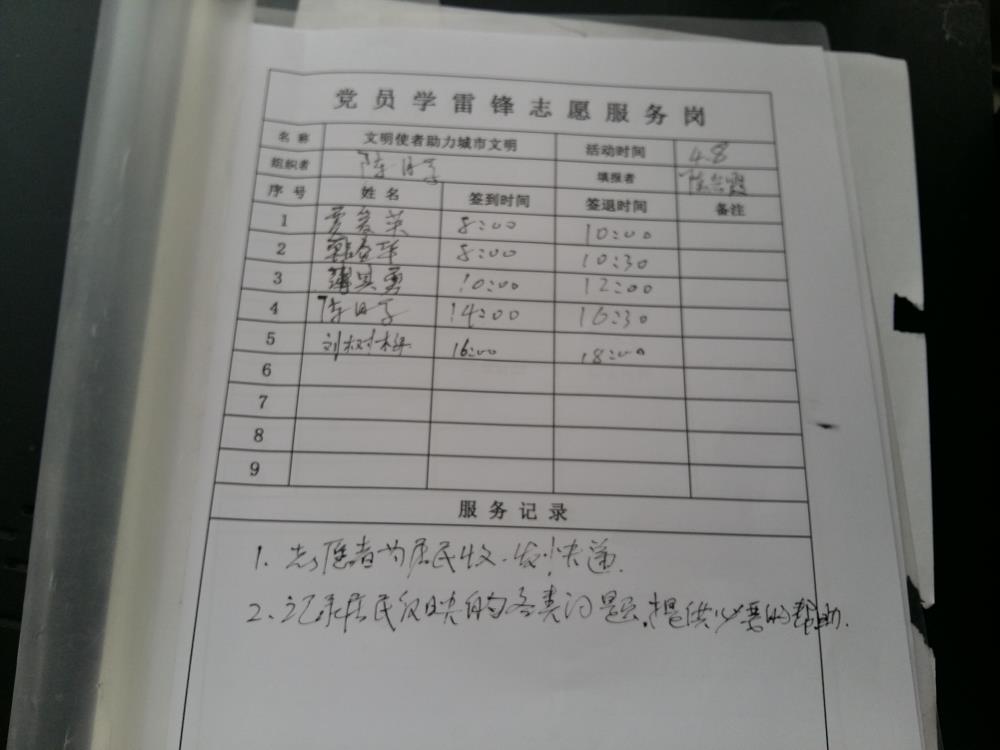 党员学雷锋志愿服务岗
名称 文明使者助力城市文明 活动时间 4.8
组织者 陈日 填报者 陈
序号 姓名 签到时间 签退时间 备注
1 英 8:00 10:00
2 韩春 8:00 10:30
3 勇 10:00 12:00
4 陈日 14:00 16:30
5 刘树梅 16:00 18:00
6
7
8
9
服务记录
1. 志愿者为居民收、发快递.
2. 记录居民反映的各类问题,提供必要的帮助.